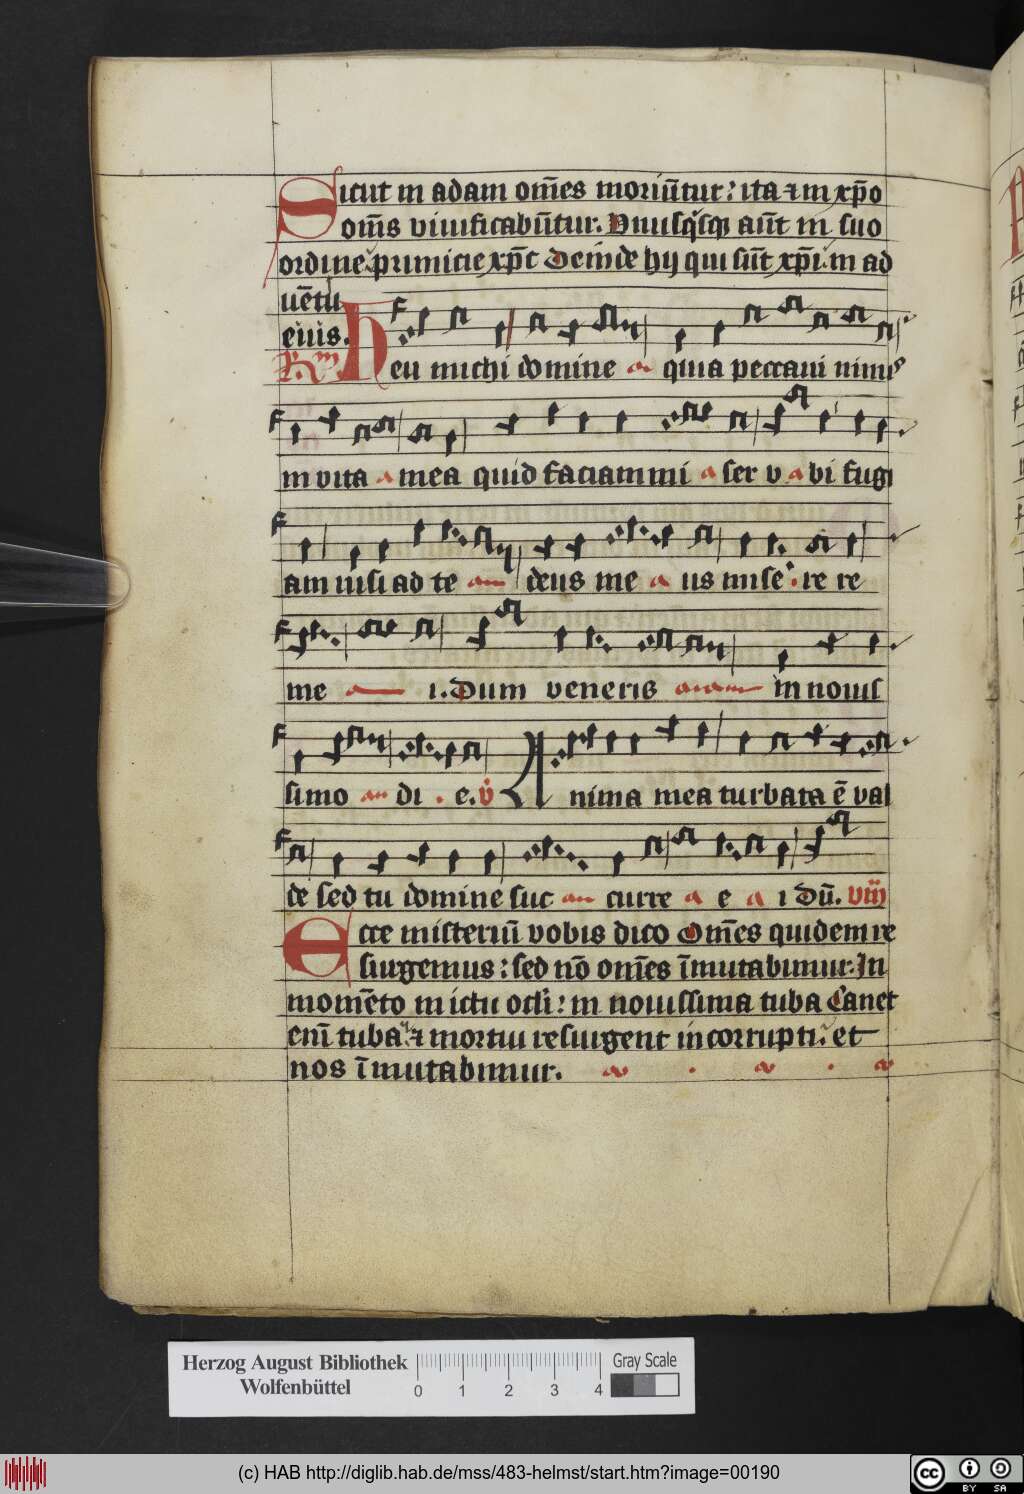 Sicut in adam om̄es moriūtur: ita ⁊ in xp̄o
om̄s viuificabūtur. Vnusq̇sqꝫ aūt in suo
ordine primicie xp̄c Deinde hij qui sūt xp̄i. in ad
uētu
eius.
F
Heu michi domine quia peccaui nimis
F
in vita mea quid faciam mi ser v bi fugi
F
am nisi ad te deus me us mise re re
F
me i. Dum veneris in nouis
F
simo di e. v̇ Anima mea turbata ē val
F
de sed tu domine suc curre e i Dū. viij
Ecce misteriū vobis dico Om̄es quidem re
surgemus: sed nō om̄es īmutabimur. In
momēto in ictu ocłi: in nouissima tuba Canet
enī tuba ⁊ mortui resurgent incorrupti et
nos īmutabimur.
Herzog August Bibliothek
Wolfenbüttel
0 1 2 3 4
Gray Scale
(c) HAB http://diglib.hab.de/mss/483-helmst/start.htm?image=00190
cc BY SA